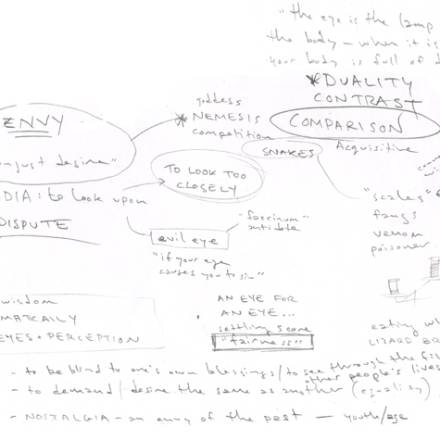 "the eye is the lamp
the body — when it is
your body is full of
*DUALITY
CONTRAST
COMPARISON
Acquisitive
goddess
* NEMESIS
competition
SNAKES
ENVY
unjust desire"
TO LOOK TOO
CLOSELY
"scales"
fangs
venom
poisoner
DIA: to look upon
DISPUTE
"fascinum"
antidote
evil eye
"if your eye
causes you to sin"
wisdom
EYES + PERCEPTION
AN EYE FOR
AN EYE...
settling score
"fairness"
eating
LIZARD
- to be blind to one's own blessings/to see through the
other people's lives
- to demand/desire the same as another (equality)
- NOSTALGIA - an envy of the past — youth/age